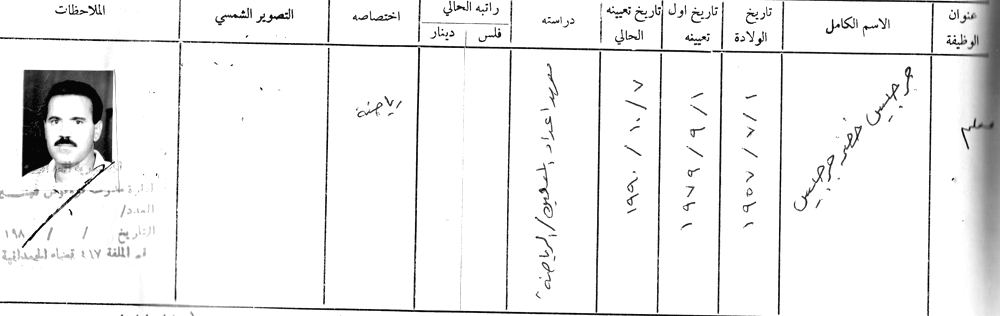 عنوان الوظيفة
الاسم الكامل
تاريخ الولادة
تاريخ اول تعيينه
تاريخ تعيينه الحالي
دراسته
راتبه الحالي
فلس
دينار
اختصاصه
التصوير الشمسي
الملاحظات
معلم
جرجيس خضر جرجيس
١٩٥٧/٧/١
١٩٧٩/٩/١
١٩٩٠/١٠/٧
معهد اعداد المعلمين/الرياضة
رياضة
العدد/
التاريخ / / ١٩٨